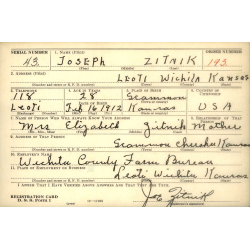 SERIAL NUMBER 1. NAME (Print) ORDER NUMBER
43 JOSEPH ZITNIK 193
2. ADDRESS (Print)
LEOTI Wichita Kansas
3. TELEPHONE 4. AGE IN YEARS 5. PLACE OF BIRTH 6. COUNTRY OF CITIZENSHIP
118 28 Scammon
Leoti Feb 16 1912 Kansas USA
7. NAME OF PERSON WHO WILL ALWAYS KNOW YOUR ADDRESS
Mrs Elizabeth Zitnik Mother
Scammon Cherokee Kansas
10. EMPLOYER'S NAME
Wichita County Farm Bureau
Leoti Wichita Kansas
I AFFIRM THAT I HAVE VERIFIED ABOVE ANSWERS AND THAT THEY ARE TRUE.
REGISTRATION CARD
D. S. S. Form 1 Joe Zitnik